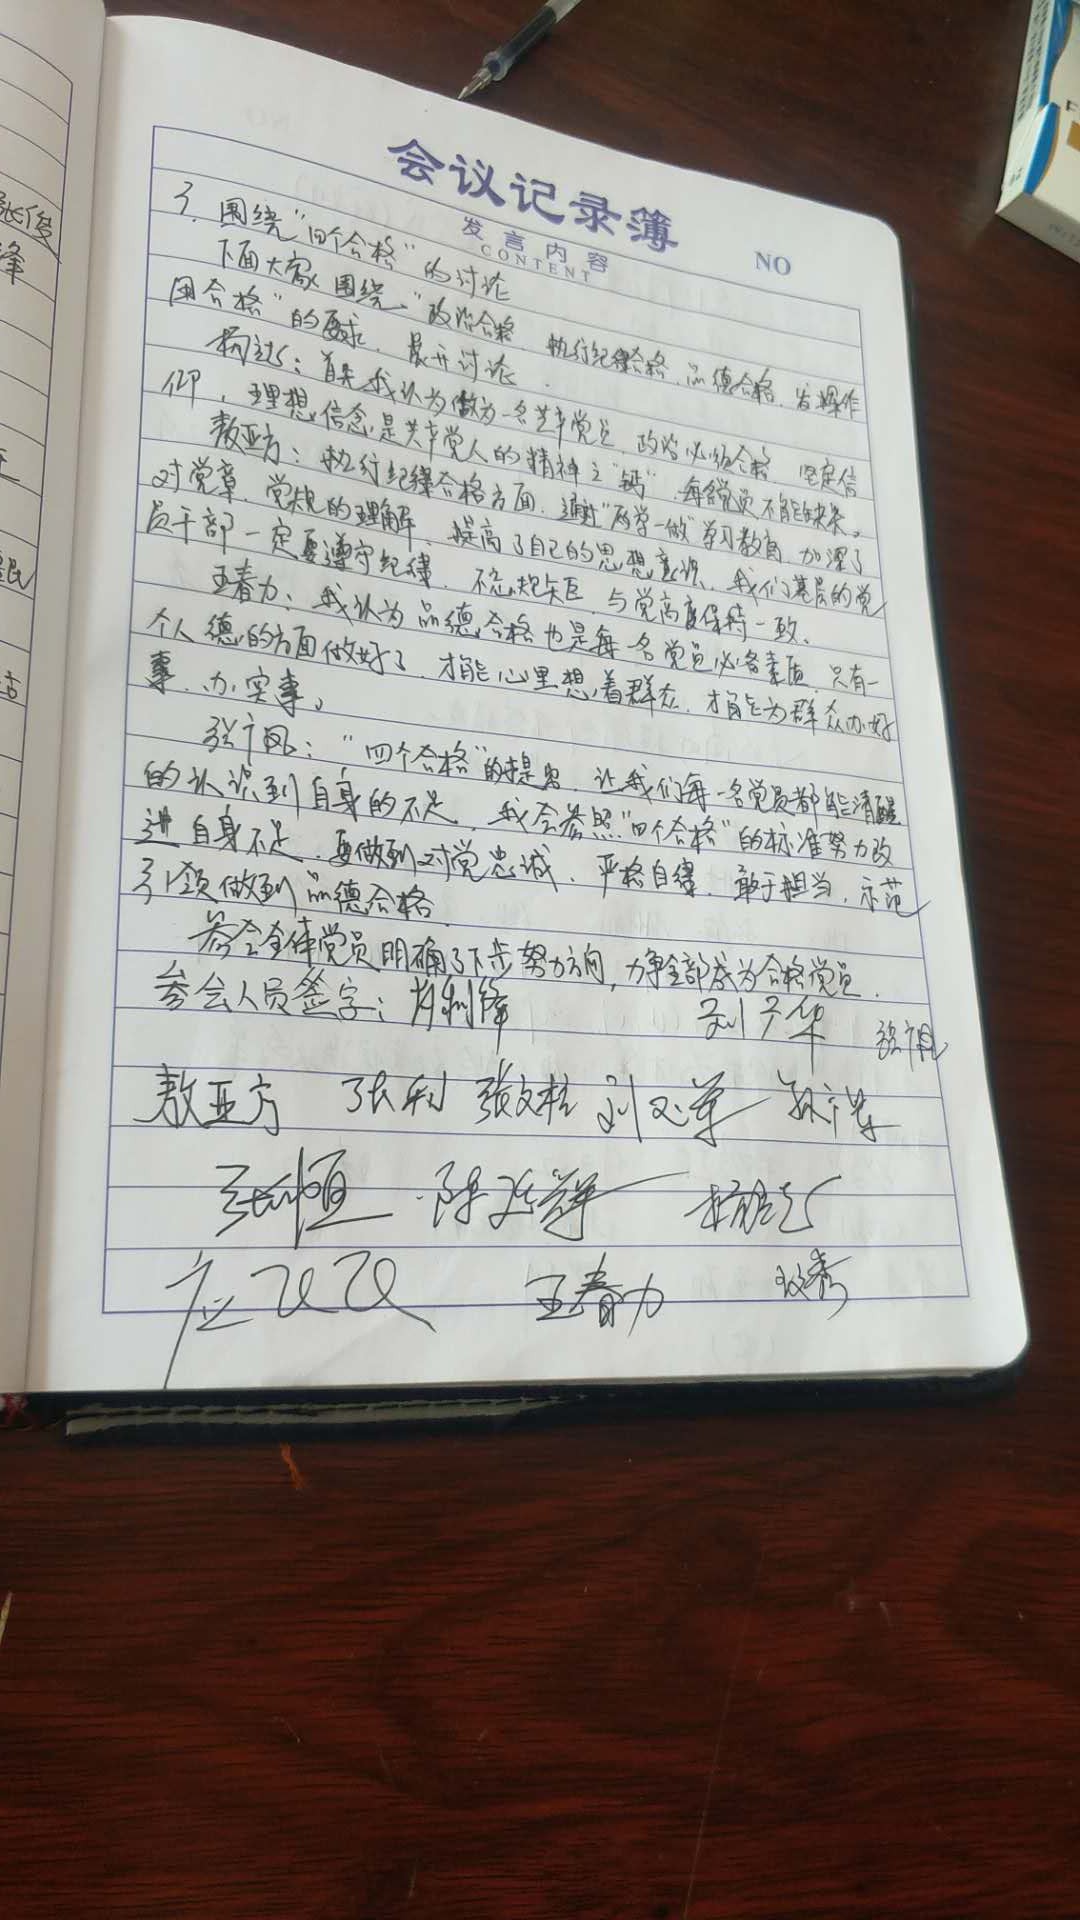 会议记录簿
发言内容
CONTENT
NO
3. 围绕“四个合格”的讨论
下面大家围绕“政治合格、执行纪律合格、品德合格、发挥作
用合格”的要求，展开讨论.
首先我认为做为一名共产党员，政治必须合格，坚定信
仰，理想信念是共产党人的精神之“钙”，每名党员不能缺失。
敖亚方：执行纪律合格方面，通过“两学一做”学习教育，加深了
对党章、党规的理解，提高了自己的思想意识、我们基层的党
员干部一定要遵守纪律，不忘规矩，与党高度保持一致、
王春力：我认为品德合格也是每一名党员必备素质，只有一
个人德的方面做好了，才能心里想着群众，才能为群众办好
事、办实事。
张广凤：“四个合格”的提出，让我们每一名党员都能清醒
的认识到自身的不足，我会参照“四个合格”的标准努力改
进自身不足，要做到对党忠诚、严格自律、敢于担当，示范
引领做到品德合格
参会全体党员明确了下步努力方向，力争全部成为合格党员.
参会人员签字：刘广华 张广凤
敖亚方 张利 张文柱
王春力
张俊